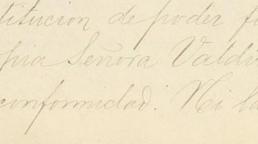 titucion de poder
pia Señora Valdi
conformidad. Ni la